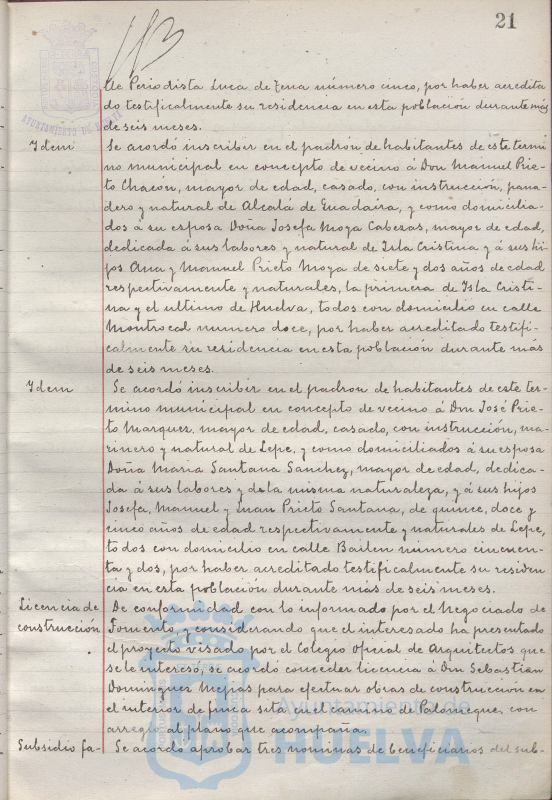 21
de Periodista Luca de Tena número cinco, por haber acredita
do testificalmente su residencia en esta población durante más
de seis meses.
Idem
Se acordó inscribir en el padrón de habitantes de este termi
no municipal en concepto de vecino á Don Manuel Prie-
to Chacon, mayor de edad, casado, con instrucción, pana-
dero y natural de Alcalá de Guadaira, y como domicilia-
dos á su esposa Doña Josefa Moya Cabezas, mayor de edad,
dedicada á sus labores y natural de Isla Cristina y á sus hi-
jos Ana y Manuel Prieto Moya de siete y dos años de edad
respectivamente y naturales, la primera de Isla Cristi-
na y el ultimo de Huelva, todos con domicilio en calle
Montrocal numero doce, por haber acreditado testifi-
calmente su residencia en esta población durante más
de seis meses.
Idem
Se acordó inscribir en el padron de habitantes de este ter-
mino municipal en concepto de vecino á Don José Prie-
to Marquez, mayor de edad, casado, con instrucción, ma-
rinero y natural de Lepe, y como domiciliados á su esposa
Doña Maria Santana Sanchez, mayor de edad, dedica-
da á sus labores y de la misma naturaleza, y á sus hijos
Josefa, Manuel y Juan Prieto Santana, de quince, doce y
cinco años de edad respectivamente y naturales de Lepe,
todos con domicilio en calle Bailen número cincuen-
ta y dos, por haber acreditado testificalmente su residen
cia en esta población durante más de seis meses.
Licencia de
construcción
De conformidad con lo informado por el Negociado de
Fomento, y considerando que el interesado ha presentado
el proyecto visado por el Colegio Oficial de Arquitectos que
se le interesó, se acordó conceder licencia á Don Sebastian
Dominguez Mejias para efectuar obras de construcción en
el interior de finca sita en el camino de Palomeque, con
arreglo al plano que acompaña.
Subsidio fa-
Se acordó aprobar tres nominas de beneficiarios del sub-
AYUNTAMIENTO DE HUELVA
Ayuntamiento de
HUELVA